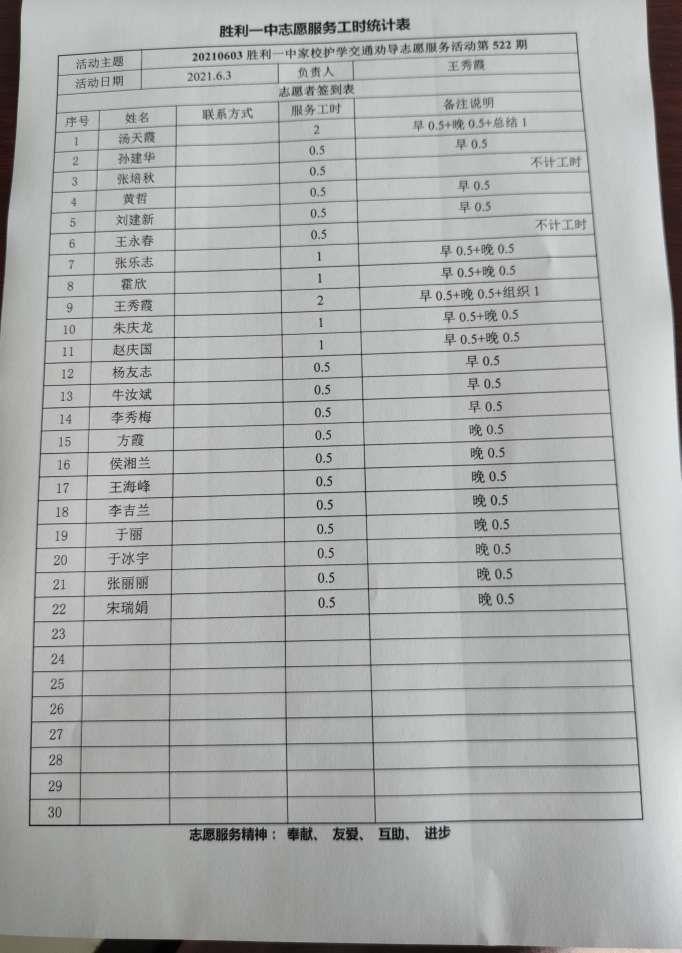 胜利一中志愿服务工时统计表
活动主题 20210603 胜利一中家校护学交通劝导志愿服务活动第 522 期
活动日期 2021.6.3 负责人 王秀霞
志愿者签到表
序号 姓名 联系方式 服务工时 备注说明
1 汤天霞 2 早 0.5+晚 0.5+总结 1
2 孙建华 0.5 早 0.5
3 张培秋 0.5 不计工时
4 黄哲 0.5 早 0.5
5 刘建新 0.5 早 0.5
6 王永春 0.5 不计工时
7 张乐志 1 早 0.5+晚 0.5
8 霍欣 1 早 0.5+晚 0.5
9 王秀霞 2 早 0.5+晚 0.5+组织 1
10 朱庆龙 1 早 0.5+晚 0.5
11 赵庆国 1 早 0.5+晚 0.5
12 杨友志 0.5 早 0.5
13 牛汝斌 0.5 早 0.5
14 李秀梅 0.5 早 0.5
15 方霞 0.5 晚 0.5
16 侯湘兰 0.5 晚 0.5
17 王海峰 0.5 晚 0.5
18 李吉兰 0.5 晚 0.5
19 于丽 0.5 晚 0.5
20 于冰宇 0.5 晚 0.5
21 张丽丽 0.5 晚 0.5
22 宋瑞娟 0.5 晚 0.5
23
24
25
26
27
28
29
30
志愿服务精神： 奉献、 友爱、 互助、 进步